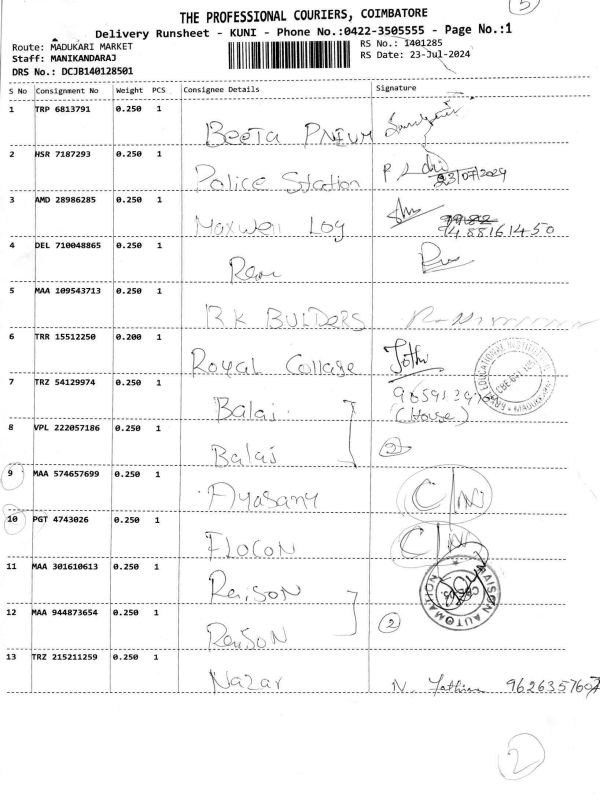 5
THE PROFESSIONAL COURIERS, COIMBATORE
Delivery Runsheet - KUNI - Phone No.:0422-3505555 - Page No.:1
Route: MADUKARI MARKET RS No.: 1401285
Staff: MANIKANDARAJ RS Date: 23-Jul-2024
DRS No.: DCJB140128501
S No Consignment No Weight PCS Consignee Details Signature
1 TRP 6813791 0.250 1
Beeta PNEUM
2 HSR 7187293 0.250 1
Police Station 23/07/2024
3 AMD 28986285 0.250 1
Maxwell Log 9488161450
4 DEL 710048865 0.250 1
5 MAA 109543713 0.250 1
RK BUILDERS
6 TRR 15512250 0.200 1
Royal Collage Jothi
7 TRZ 54129974 0.250 1
Balaj (House)
8 VPL 222057186 0.250 1
Balaj 2
9 MAA 574657699 0.250 1
Ayasamy
10 PGT 4743026 0.250 1
FLOCON
11 MAA 301610613 0.250 1
RaisON
12 MAA 944873654 0.250 1
RaisON 2
13 TRZ 215211259 0.250 1
Nazar N. 9626357607
2